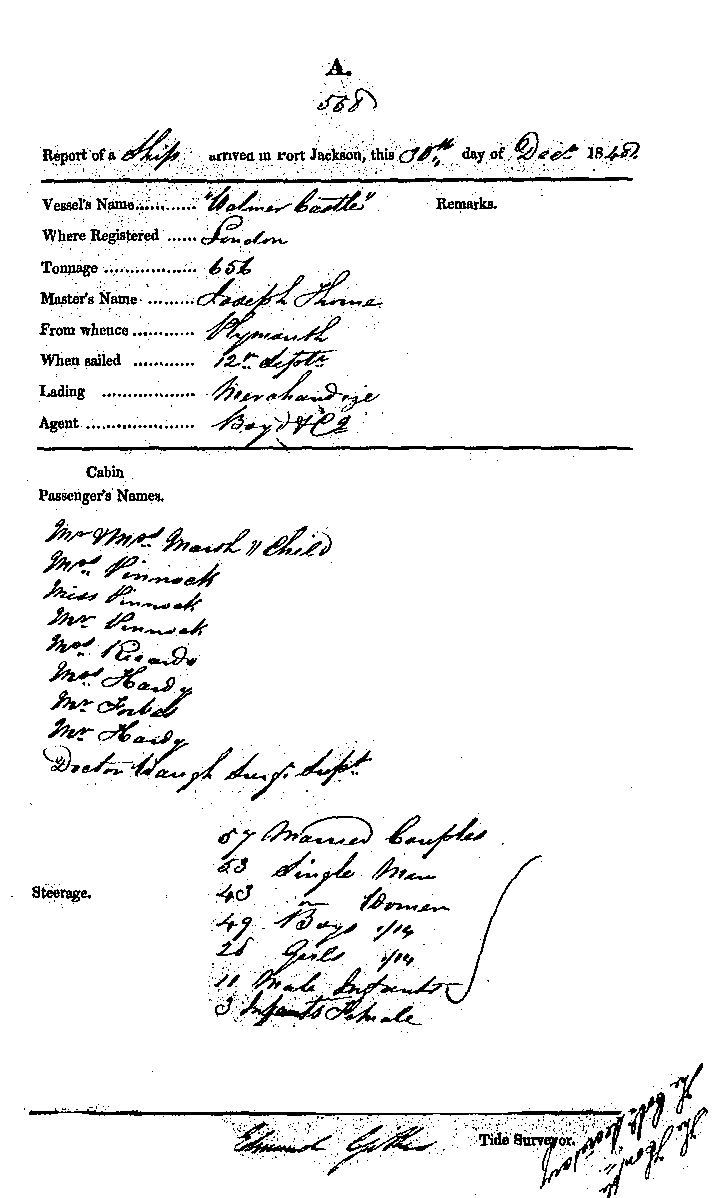 A.
568
Report of a Ship arrived in Port Jackson, this 30th day of Decr 1848.
Vessel's Name........... "Walmer Castle" Remarks.
Where Registered ...... London
Tonnage .................. 656
Master's Name ......... Joseph Thorne
From whence ............ Plymouth
When sailed ............ 12th Septr
Lading .................. Merchandize
Agent ..................... Boyd & Co
Cabin
Passenger's Names.
Mr & Mrs Marsh " Child
Mrs Pinnock
Miss Pinnock
Mr Pinnock
Mrs Ricardo
Mrs Hardy
Mr Forbes
Mr Hardy
Doctor Waugh Surgn Supt
57 Married Couples
53 Single Men
Steerage.
43 Do Women
49 Boys 1/14
Girls 1/14
11 Male Infants
3 Infants Female
Edmund Tide Surveyor.